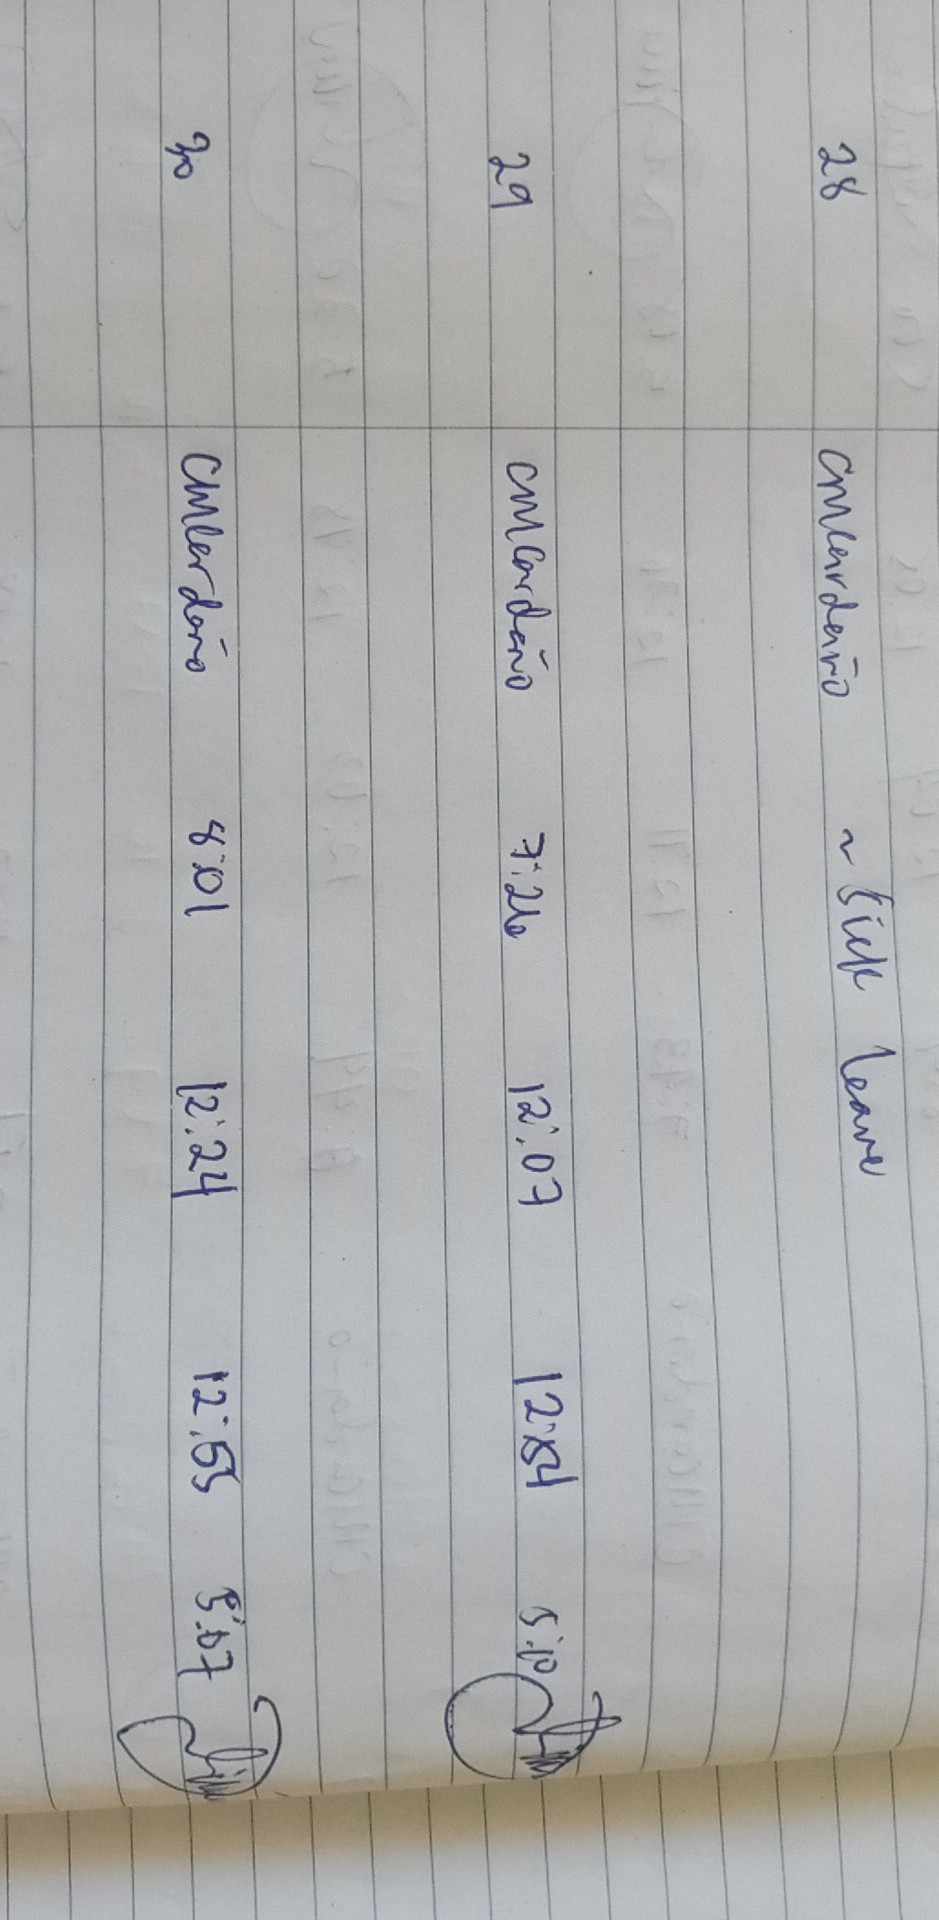 28 CMCardeño ~ Sick leave
29 CMCardeño 7:26 12:07 12:54 5:10
30 CMCardeño 8:01 12:24 12:55 5:07